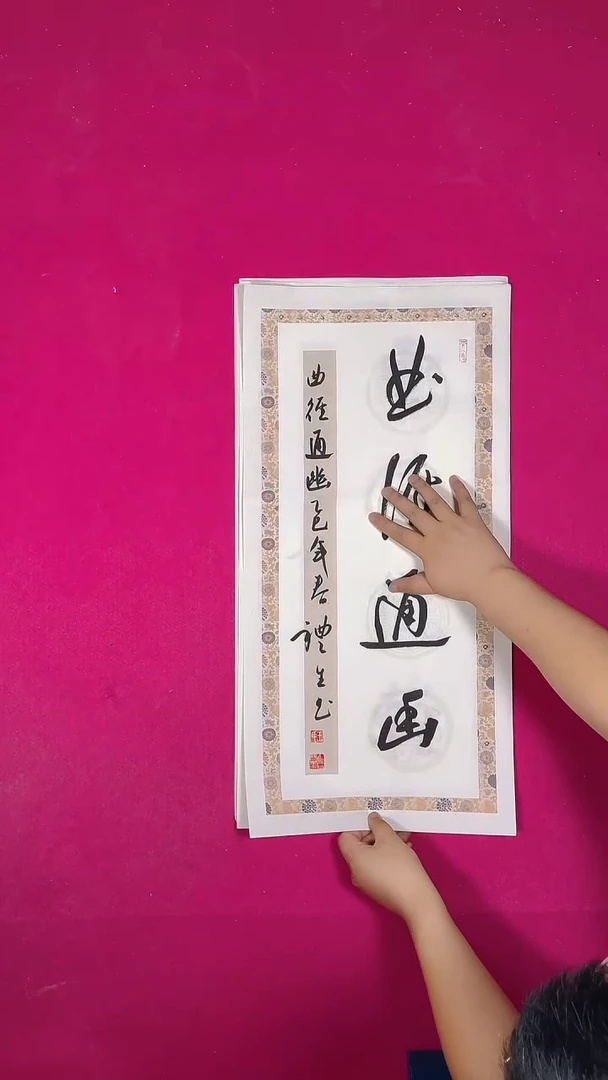 曲径通幽
曲径通幽乙巳年春禮生书